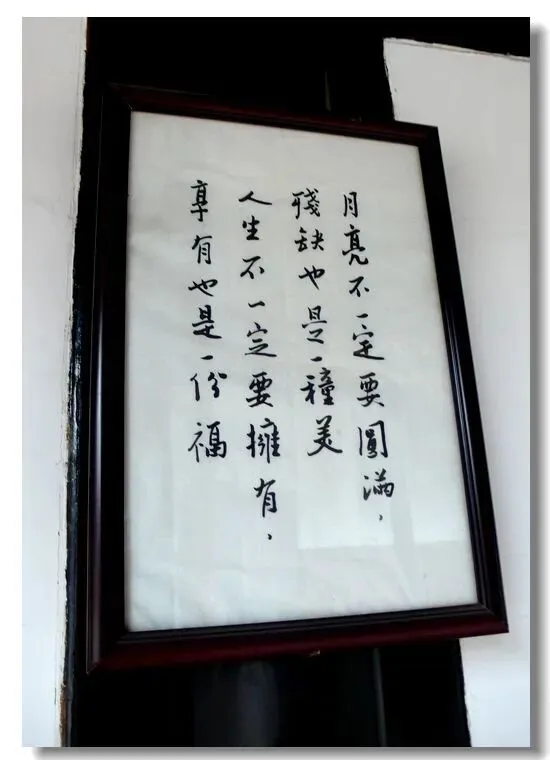 月亮不一定要圓滿，
殘缺也是一種美
人生不一定要擁有，
享有也是一份福